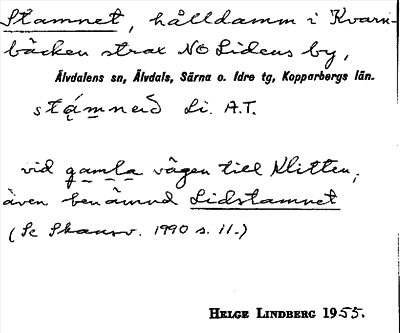 Stamnet, hålldamm i Kvarn-
bäcken strax NO Lidens by,
Älvdalens sn, Älvdals, Särna o. Idre tg, Kopparbergs län.
stą́mneð Li. A.T.
vid gamla vägen till Klitten,
även benämnd Lidstamnet
(Se Skansv. 1990 s. 11.)
HELGE LINDBERG 1955.